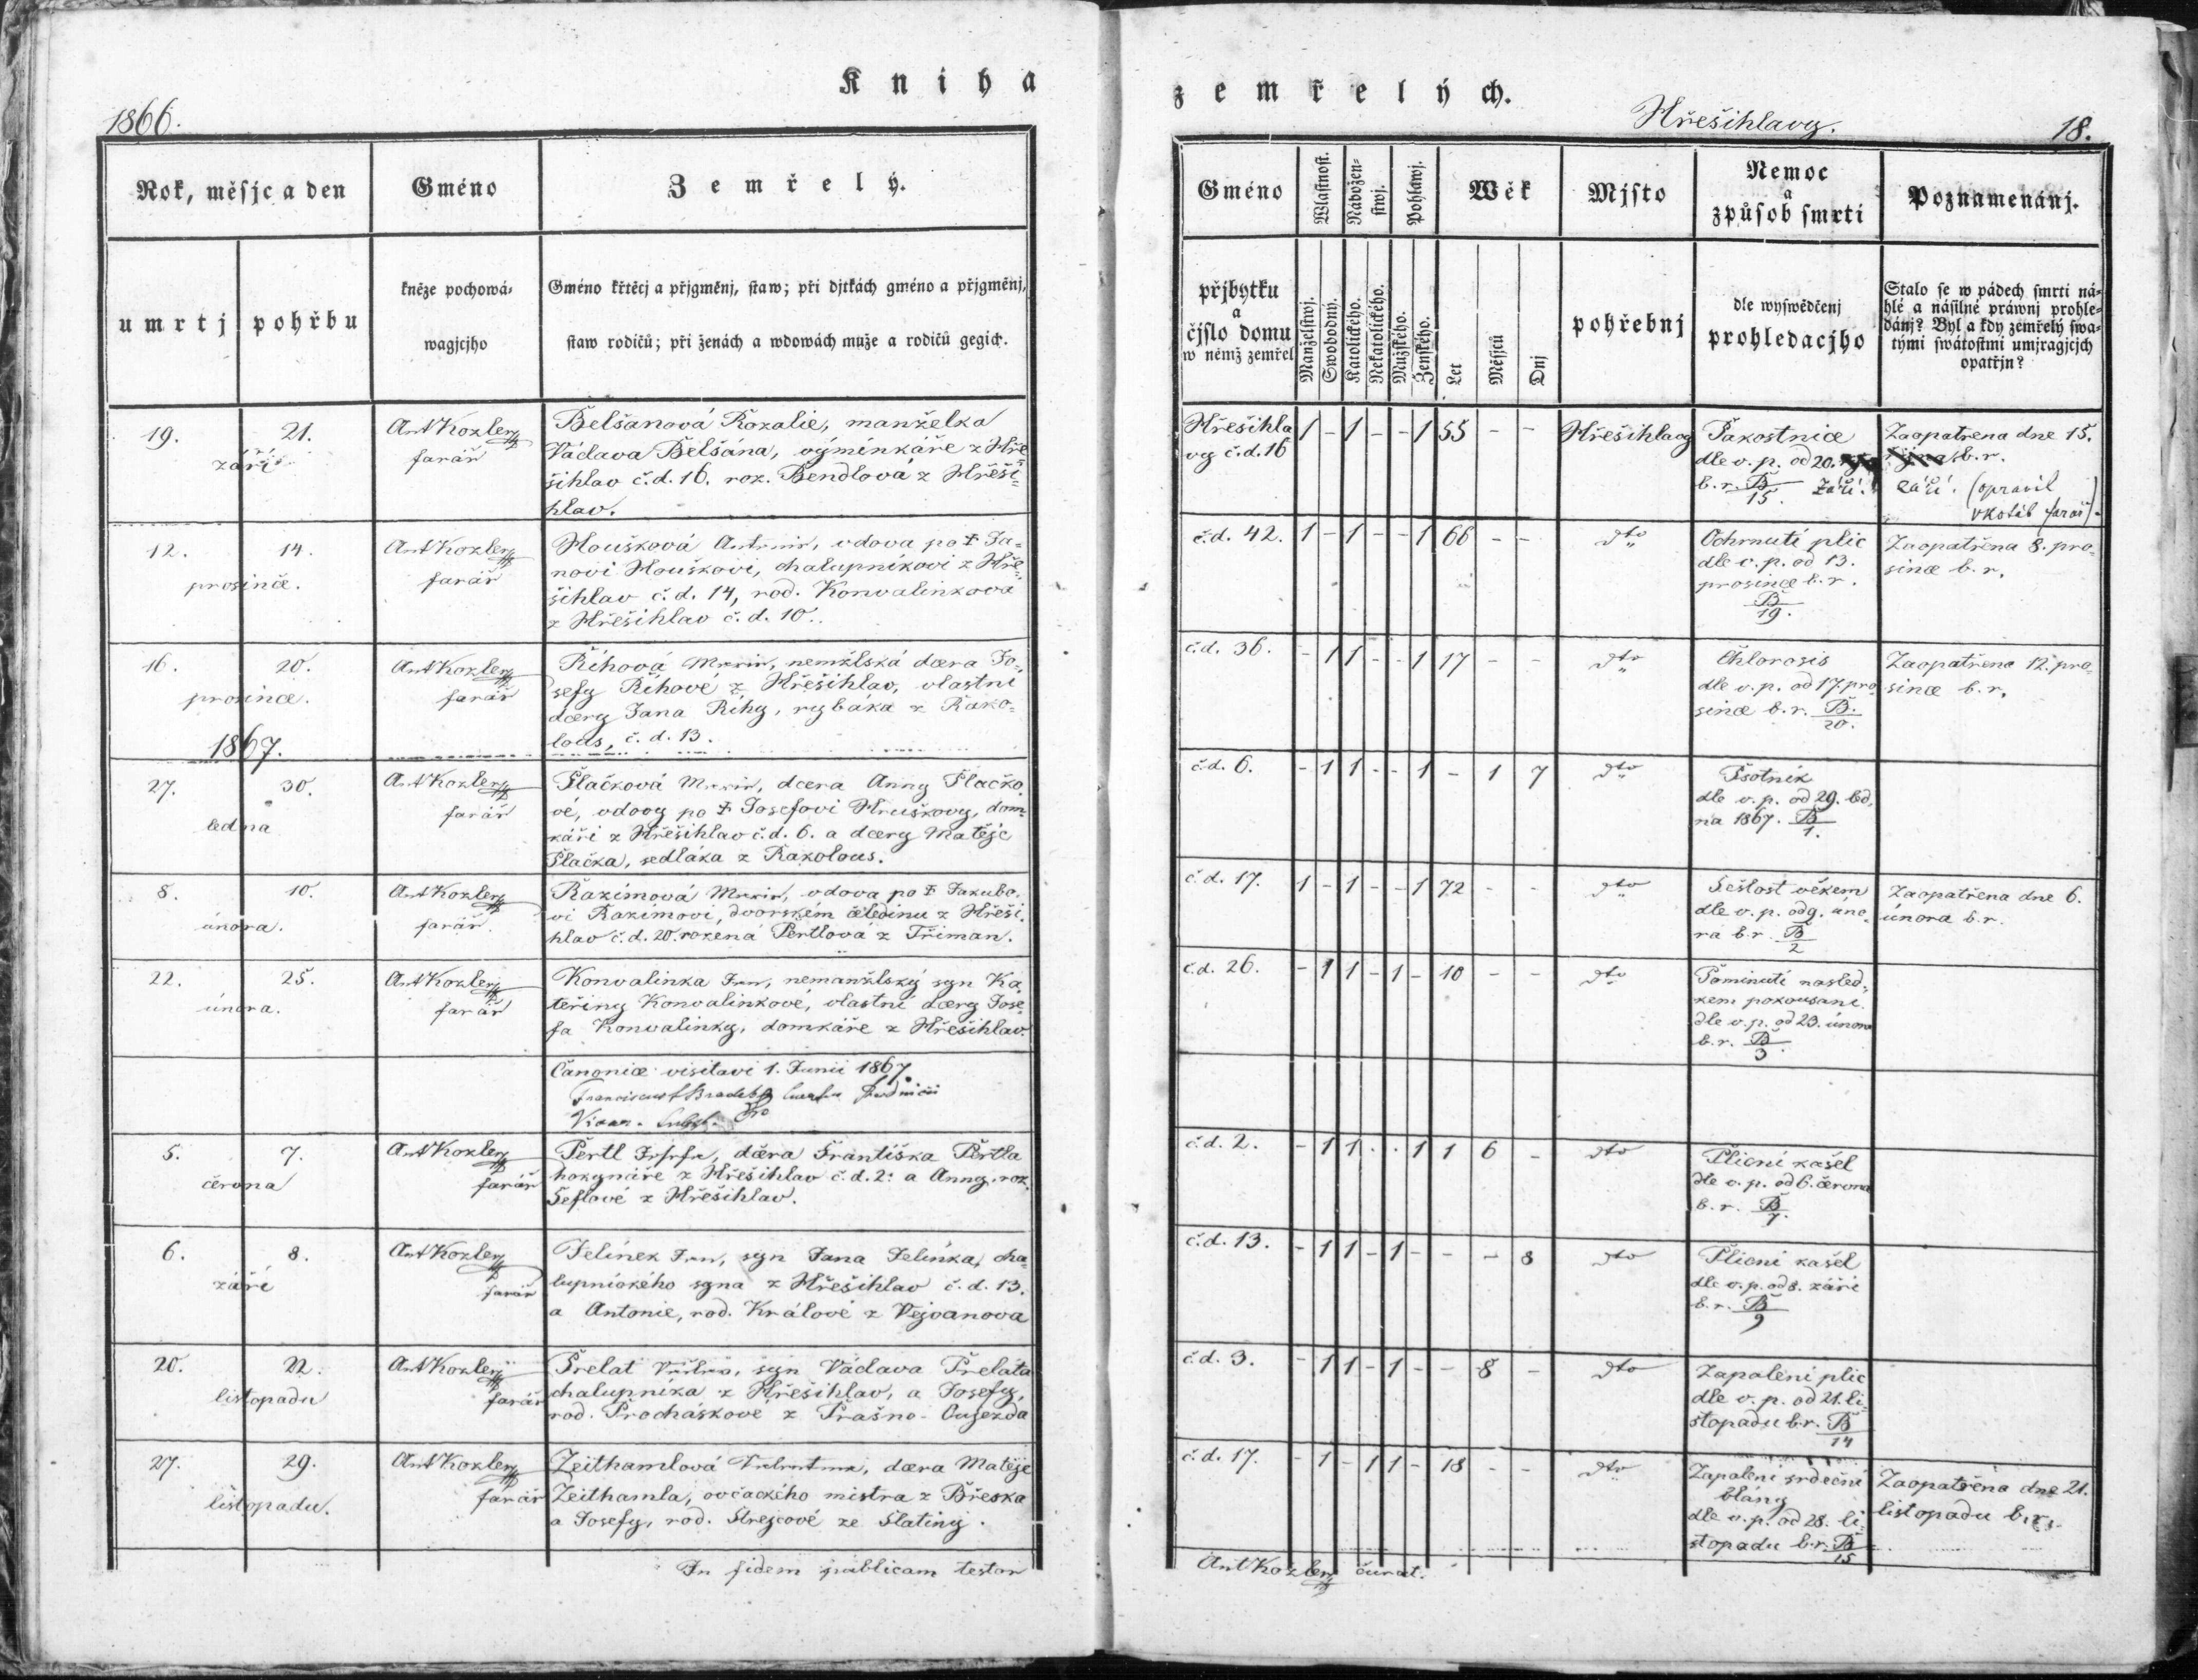 Kniha
1866.
Rok, měsjc a den
umrtj
pohřbu
Gméno
kněze pochowá-
wagjcjho
Zemřelý.
Gméno křtěcj a přjgměnj, staw; při djtkách gméno a přjgměnj,
staw rodičů; při ženách a wdowách muže a rodičů gegich.
19. 21.
září
Ant Kozler
farář
Belšanová Rozalie, manželka
Václava Belšána, výměnkáře z Hře
šihlav č.d. 16. roz. Bendlová z Hřeši=
hlav.
12. 14.
prosince.
Ant Kozler
farář
Houšková Antonie, vdova po † Ja=
novi Houškovi, chalupníkovi z Hře=
šihlav č.d. 14, rod. Konvalinkova
z Hřešihlav č.d. 10.
16. 20.
prosince.
Ant Kozler
farář
Říhová Marie, nemžlská dcera Jo=
sefy Říhové z Hřešihlav, vlastní
dcery Jana Říhy, rybáka z Rako=
lous, č.d. 13.
1867.
27. 30.
ledna
Ant Kozler
farář
Plačková Marie, dcera Anny Plačko
vé, vdovy po † Josefovi Hruškovy, dom=
káři z Hřešihlav č.d. 6. a dcery Matěje
Plačka, sedláka z Rakolous.
8. 10.
února.
Ant Kozler
farář.
Razímová Marie, vdova po † Jakubo=
vi Razímovi, dvorském čeledínu z Hřeši=
hlav č.d. 20. rozená Pertlová z Třiman.
22. 25.
února.
Ant Kozler
farář
Konvalinka Jan, nemanžlský syn Ka=
teřiny Konvalinkové, vlastní dcery Jose
fa Konvalinky, domkáře z Hřešihlav.
Canonice visitavi 1. Junii 1867.
Franciscus
5. 7.
června
Ant Kozler
farář
Pertl Josefa, dcera Františka Pertla
hokynáře z Hřešihlav č.d. 2. a Anny roz.
Šeflové z Hřešihlav.
6. 8.
září
Ant Kozler
farář
Jelínek Jan, syn Jana Jelínka, cha=
lupnického syna z Hřešihlav č.d. 13.
a Antonie, rod. Králové z Vejvanova
20. 22.
listopadu
Ant Kozler
farář
Prelat syn Václava Prelata
chalupníka z Hřešihlav, a Josefy,
rod. Procháskové z Prašno-Oujezda
27. 29.
listopadu.
Ant Kozler
farář
Zeithamlová dcera Matěje
Zeithamla, ovčackého mistra z Břeska
a Josefy, rod. Strejcové ze Slatiny.
In fidem publicam testor
zemřelých.
Hřešihlavy.
18.
Gméno
přjbytku
a
čjslo domu
w němž zemřel
Wlastnost.
Manželstwj.
Swobodný.
Nábožen-
stwj.
Katolického.
Nekatolického.
Pohlawj.
Mužského.
Ženského.
Wěk
Let
Měsjců
Dnj
Mjsto
pohřebnj
Nemoc
a
způsob smrti
dle wyswědčenj
prohledacjho
Poznamenánj.
Stalo se w pádech smrti ná-
hlé a násilné práwnj prohle-
dánj? Byl a kdy zemřelý swa-
tými swátostmi umjragjcjch
opatřjn?
Hřešihla
vy č.d. 16 1 – 1 – – 1 55 – – Hřešihlavy
Pakostnice
dle o.p. od 20.
b.r. B/15. Září.
Zaopatřena dne 15.
b.r.
Září. (opravil
VKotáb farář).
č.d. 42. 1 – 1 – – 1 66 – – dto
Ochrnutí plic
dle o.p. od 13.
prosince b.r.
B/19.
Zaopatřena 8. pro=
since b.r.
č.d. 36. – 1 1 – – 1 17 – – dto
Chlorosis
dle o.p. od 17. pro
since b.r. B./20.
Zaopatřena 12. pro=
since b.r.
č.d. 6. – 1 1 – – 1 – 1 7 dto
Psotník
dle o.p. od 29. led=
na 1867. B/1.
č.d. 17. 1 – 1 – – 1 72 – – dto
Sešlost věkem
dle o.p. od 9. úno=
ra b.r. B/2
Zaopatřena dne 6.
února b.r.
č.d. 26. – 1 1 – 1 – 10 – – dto
Pominutí násled=
kem pokousaní
dle o.p. od 23. února
b.r. B/3.
č.d. 2. – 1 1 . . 1 1 6 – dto
Plicní kašel
dle o.p. od 6. června
b.r. B/7.
č.d. 13. – 1 1 – 1 – – – 8 dto
Plicní kašel
dle o.p. od 8. září
b.r. B/9
č.d. 3. – 1 1 – 1 – – 8 – dto
Zapálení plic
dle o.p. od 21. li=
stopadu b.r. B/14
č.d. 17. – 1 – 1 1 – 18 – – dto
Zapálení srdeční
blány
dle o.p. od 28. li=
stopadu b.r. B/15
Zaopatřena dne 21.
listopadu b.r.
Ant Kozler curat.